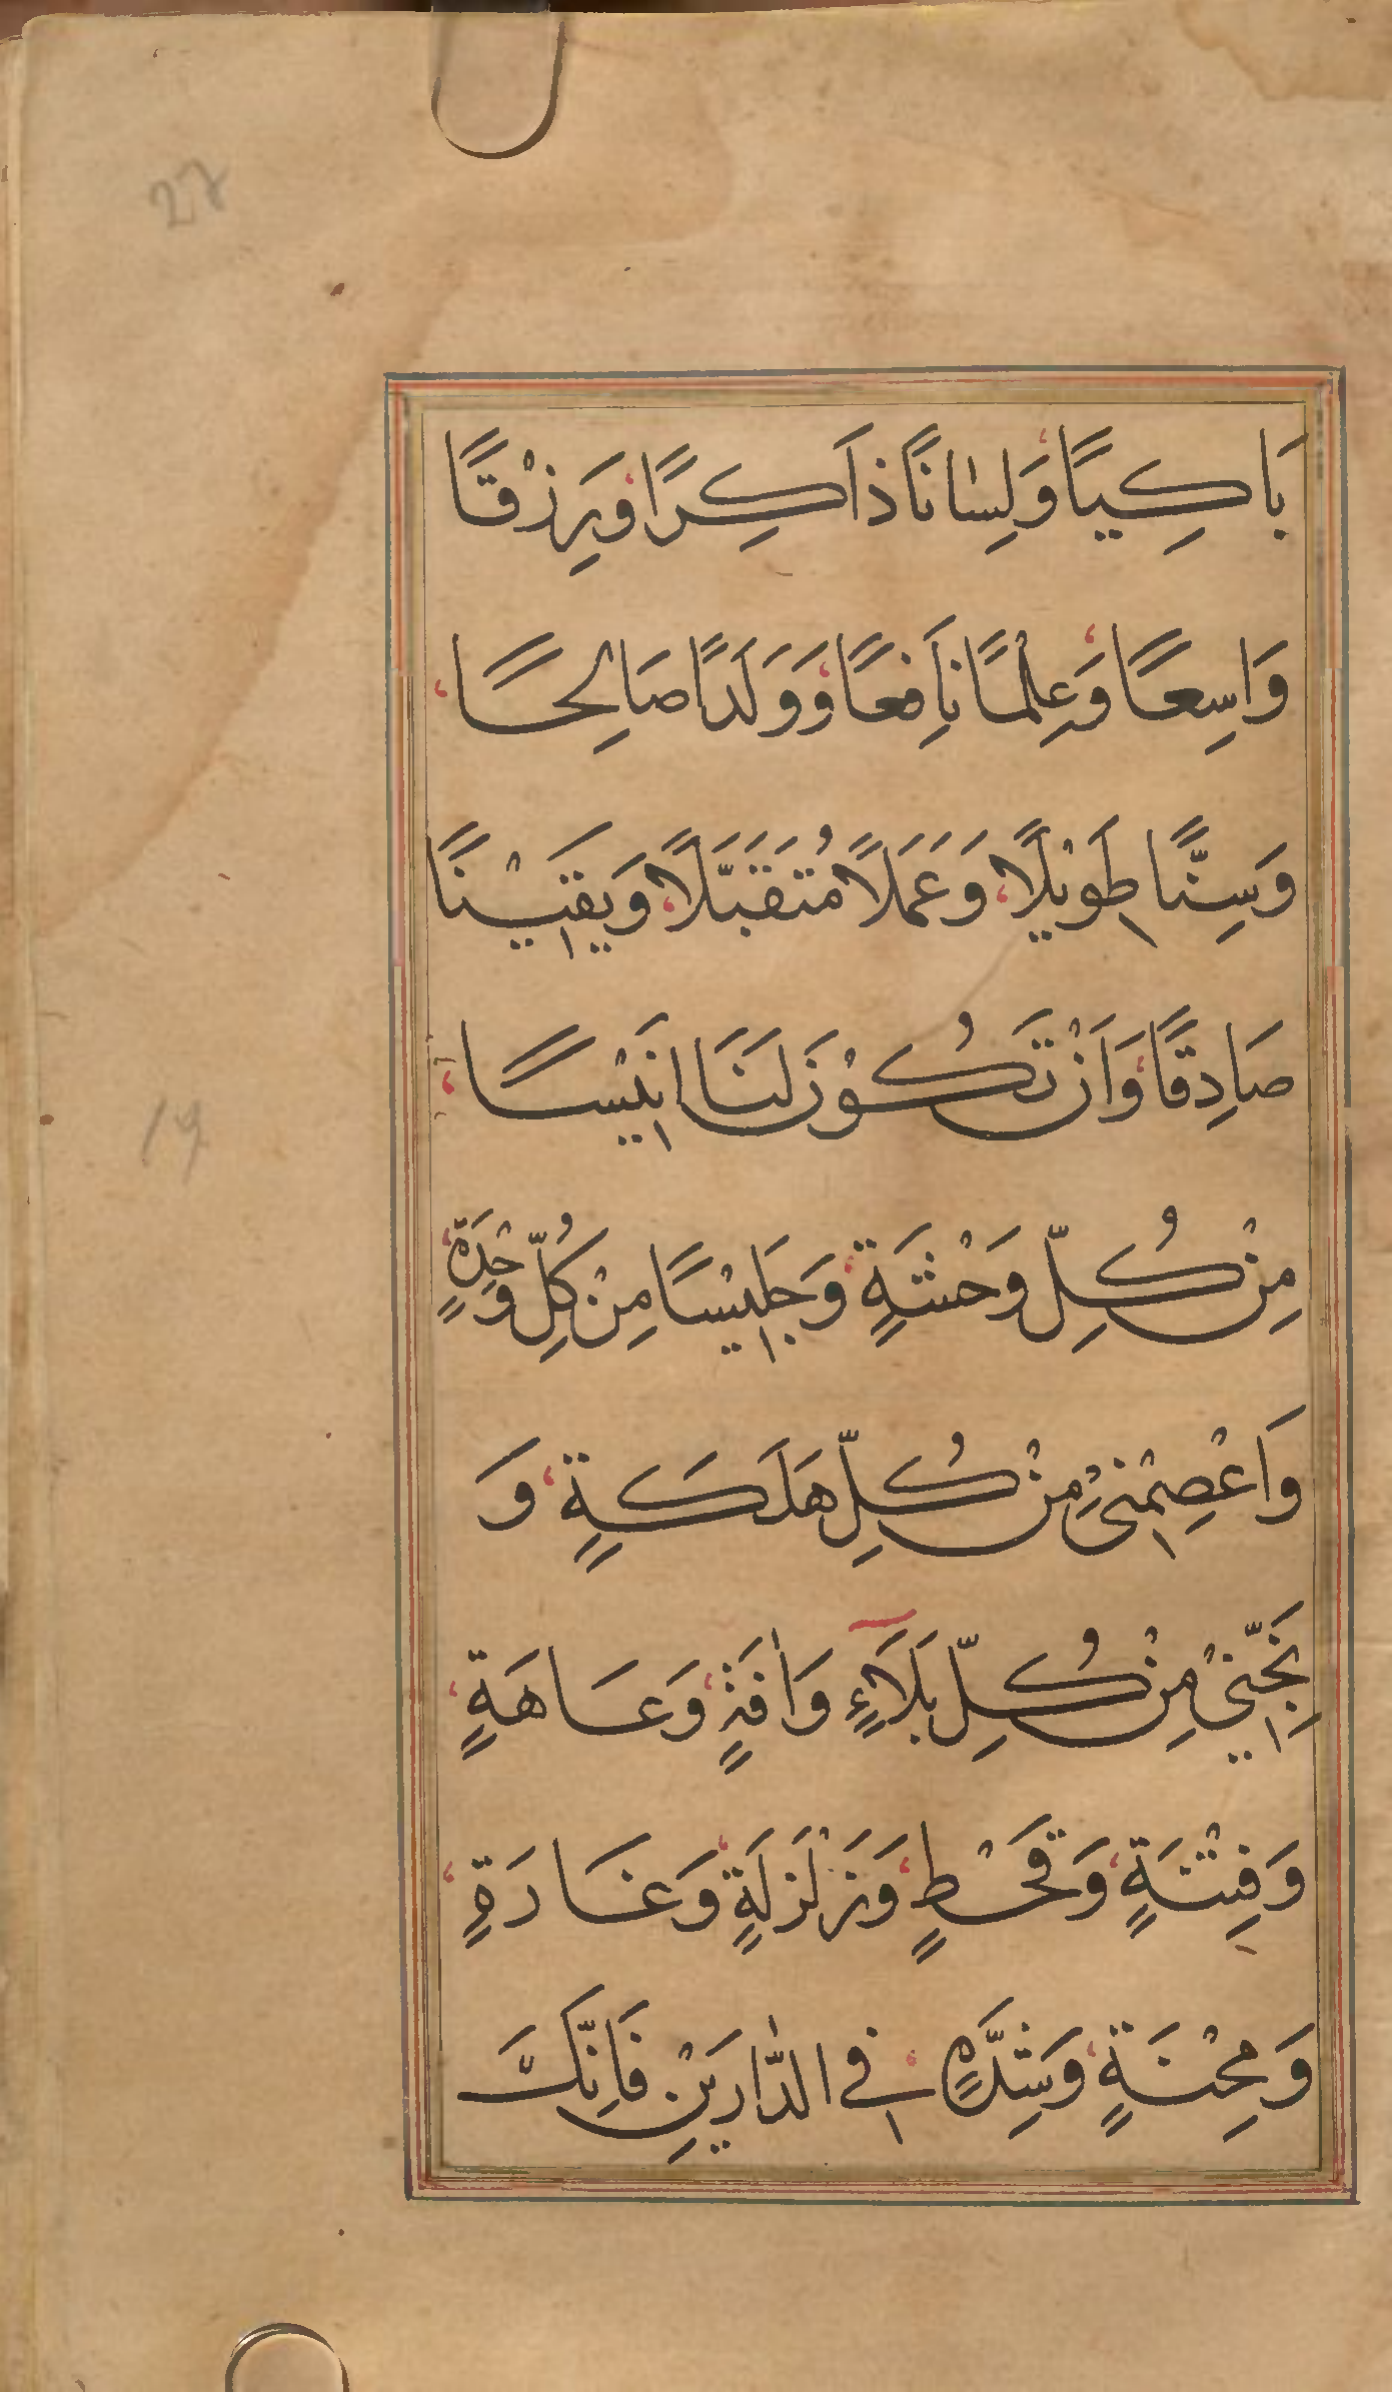 27
بَاكِيًا وَلِسَانًا ذَاكِرًا وَرِزْقًا
وَاسِعًا وَعِلْمًا نَافِعًا وَوَلَدًا صَالِحًا
وَسِنًّا طَوِيْلًا وَعَمَلًا مُتَقَبَّلًا وَيَقِيْنًا
صَادِقًا وَاَنْ تَكُوْنَ لَنَا اَنِيْسًا
مِنْ كُلِّ وَحْشَةٍ وَجَلِيْسًا مِنْ كُلِّ وَحْدَةٍ
وَاعْصِمْنِيْ مِنْ كُلِّ هَلَكَةٍ وَ
نَجِّنِيْ مِنْ كُلِّ بَلَاءٍ وَاٰفَةٍ وَعَاهَةٍ
وَفِتْنَةٍ وَقَحْطٍ وَزَلْزَلَةٍ وَغَارَةٍ
وَمِحْنَةٍ وَشِدَّةٍ فِي الدَّارَيْنِ فَاِنَّكَ